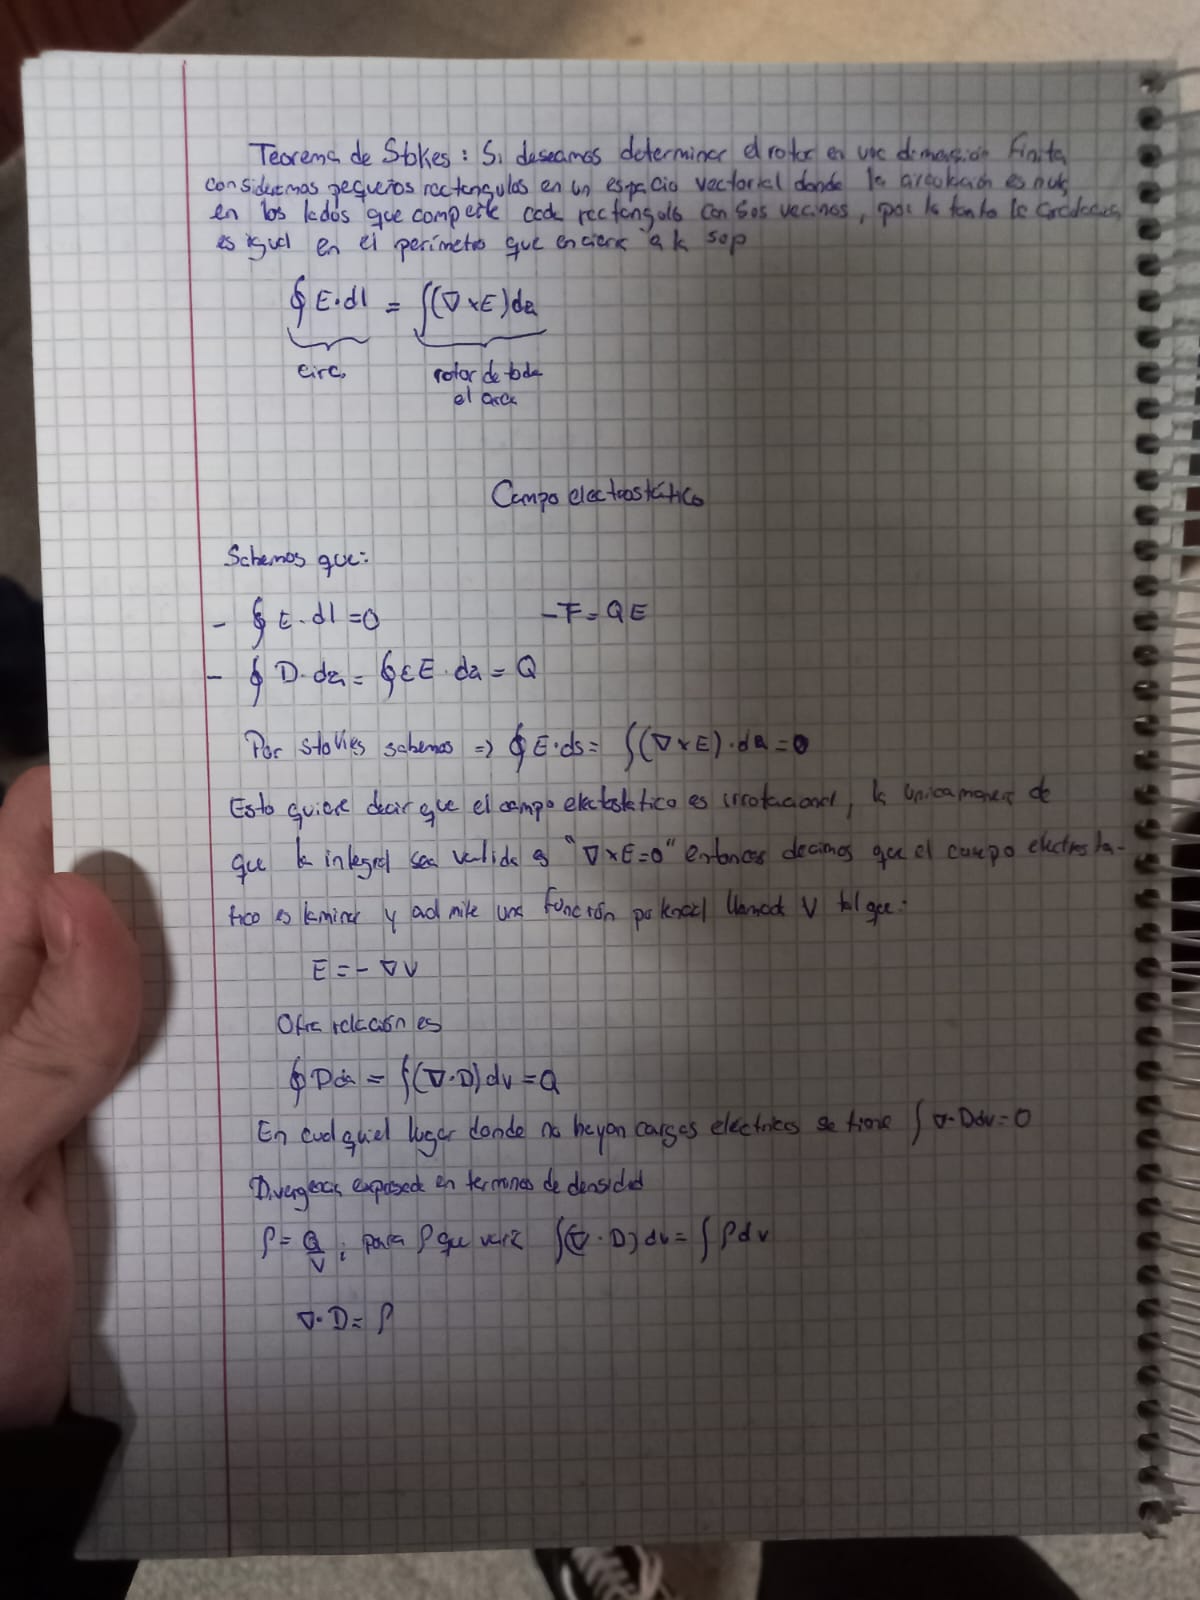 Teorema de Stokes: Si deseamos determinar el rotor en una dimensión finita
consideremos pequeños rectangulos en un espacio vectorial donde la circulación es nula
en los lados que comparte cada rectangulo con sus vecinos, por lo tanto la circulación
es igual en el perímetro que encierra a la sup
∮ E·dl = ∫(∇×E)da
circ. rotor de toda
el area
Campo electrostático
Sabemos que:
- ∮ E·dl=0 - F=QE
- ∮ D·da = ∮εE·da = Q
Por stokes sabemos => ∮ E·ds= ∫(∇×E)·da=0
Esto quiere decir que el campo electostatico es irrotacional, la unica manera de
que la integral sea valida es "∇×E=0" entonces decimos que el campo electrosta-
tico es laminar y admite una función potencial llamada V tal que:
E=-∇V
Otra relación es
∮ Dda = ∫(∇·D)dv=Q
En cualquiel lugar donde no hayan cargas eléctricas se tiene ∫∇·Ddv=0
Divergencia expresada en terminos de densidad
ρ= Q/V ; para ρ que varíe ∫(∇·D)dv= ∫ρdv
∇·D= ρ